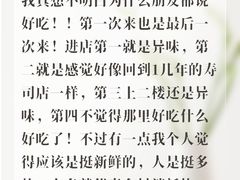 我真想不明白为什么朋友都说
好吃！！第一次来也是最后一
次来！进店第一就是异味，第
二就是感觉好像回到1几年的寿
司店一样，第三上二楼还是异
味，第四不觉得那里好吃什么
好吃了！不过有一点我个人觉
得应该是挺新鲜的，人是挺多